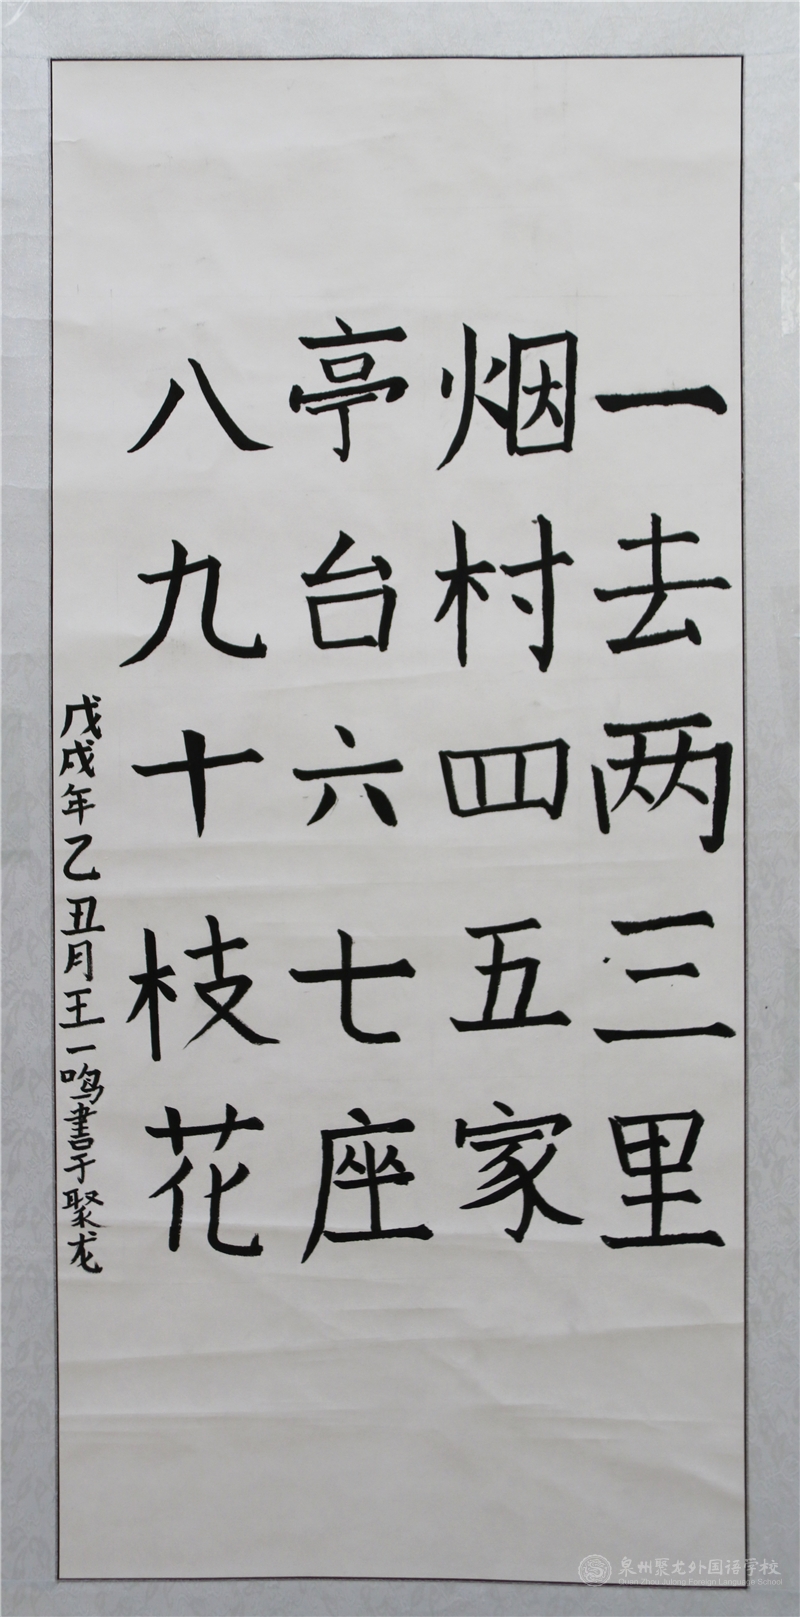 一去两三里
烟村四五家
亭台六七座
八九十枝花
戊戌年乙丑月王一鸣書于聚龙
泉州聚龙外国语学校
Quan Zhou Julong Foreign Language School